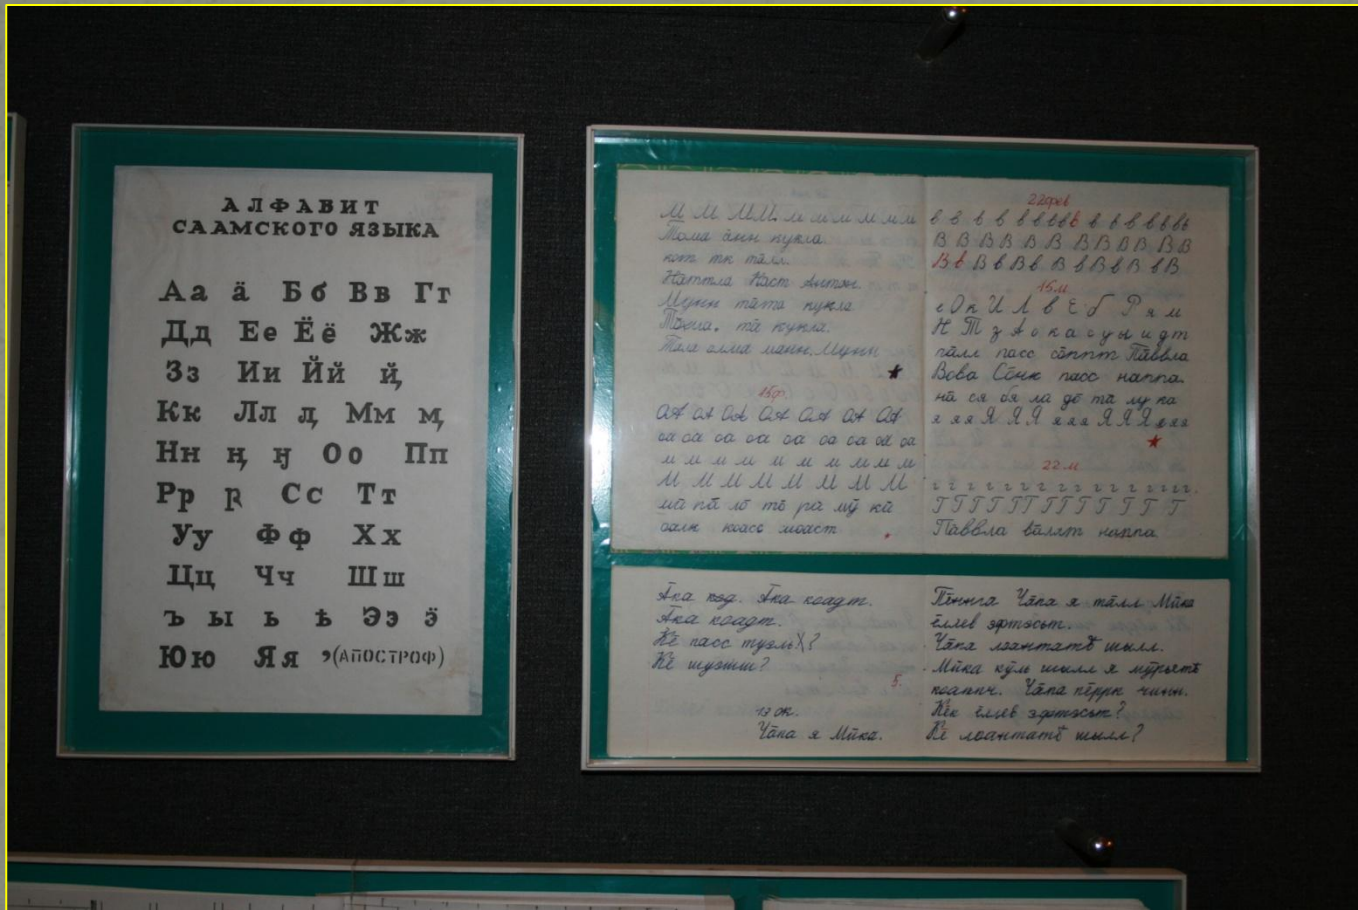 АЛФАВИТ
СААМСКОГО ЯЗЫКА
Аа ӓ Бб Вв Гг
Дд Ее Ёё Жж
Зз Ии Йй ҋ
Кк Лл ӆ Мм ӎ
Нн ӊ ӈ Оо Пп
Рр ҏ Сс Тт
Уу Фф Хх
Цц Чч Шш
ъ ы ь ҍ Ээ ӭ
Юю Яя ʼ(АПОСТРОФ)
М М М М м м м м м м
Тома кукла.
кот тк тӣлл.
Наст Антэн.
Мунн та̄та кукла
та̄ кукла.
олма манн. Мунн
15ф.
ОА ОА ОА ОА ОА ОА ОА
оа оа оа оа оа оа оа оа оа
м м м м м м м м м м
М М М М М М М М
ма̄ па̄ лō тē ра мӯ ка̄
оалк коасс моаст
22фев
в в в в в в в в в в в в в в в
В В В В В В В В В В В В
В в В в В в В в В в В в В
15.м
е О к И Л в Е б Р я м
Н Т з А о к а с у ы и д т
па̄лл пасс са̄ппт Па̄ввла
Вова Сōнк пасс наппа.
на̄ ся бя ла дē та лу ка
я я я Я Я Я я я я Я Я Я я я я
22.м
г г г г г г г г г г г г г.
Г Г Г Г Г Г Г Г Г Г Г Г
Па̄ввла ва̄ллт наппа
А̄ка кэд. А̄ка коадт.
А̄ка коадт.
Кē пасс туэль?
Кē шуэшш?
5.
13 ок.
Ча̄па я Мӣка.
Пēннга Ча̄па я та̄лл Мӣка
ēллев эфтэсьт.
Ча̄па лоантатҍ шылл.
Мӣка кӯль шылл я мӯрьятҍ
коаппч. Ча̄па пēррк чинн.
Кēк ēллев эфтэсьт?
Кē лоантатҍ шылл?